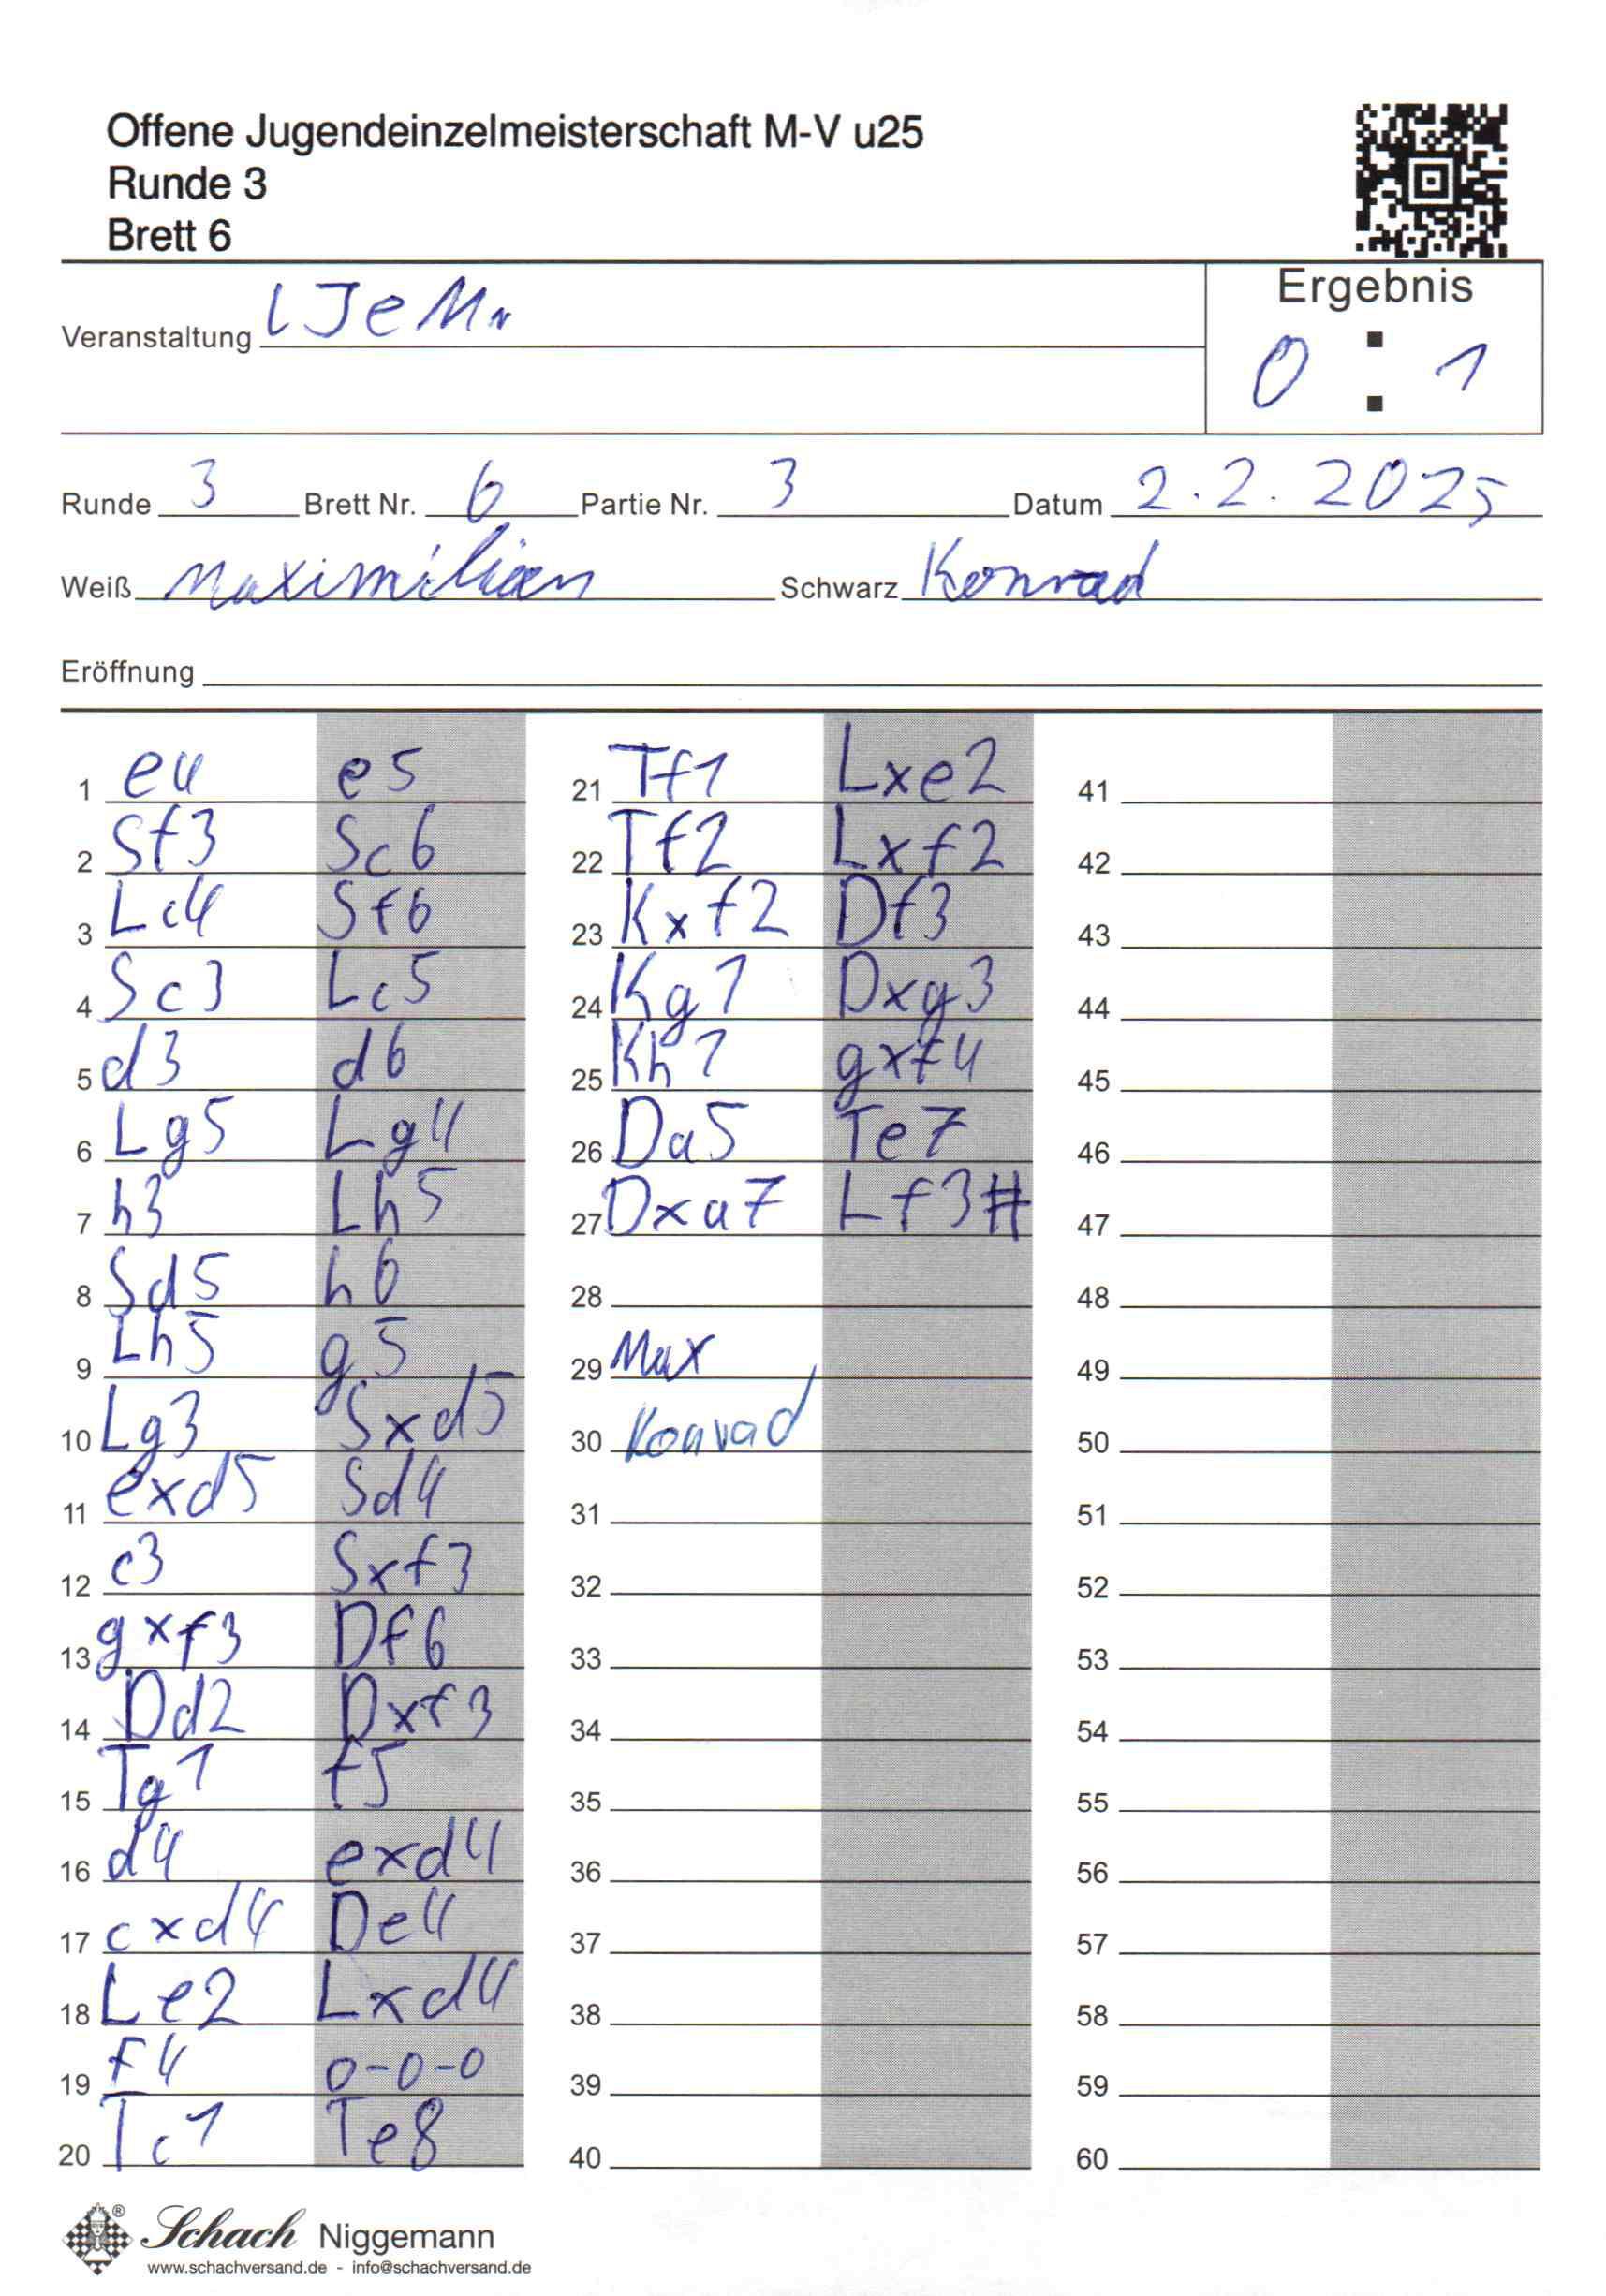 Offene Jugendeinzelmeisterschaft M-V u25
Runde 3
Brett 6
Veranstaltung LJeM
Ergebnis
0 : 1
Runde 3 Brett Nr. 6 Partie Nr. 3 Datum 2.2.2025
Weiß Maximilian Schwarz Konrad
Eröffnung
1 e4 e5
2 Sf3 Sc6
3 Lc4 Sf6
4 Sc3 Lc5
5 d3 d6
6 Lg5 Lg4
7 h3 Lh5
8 Sd5 h6
9 Lh5 g5
10 Lg3 Sxd5
11 exd5 Sd4
12 c3 Sxf3
13 gxf3 Df6
14 Dd2 Dxf3
15 Tg1 f5
16 d4 exd4
17 cxd4 De4
18 Le2 Lxd4
19 f4 0-0-0
20 Tc1 Te8
21 Tf1 Lxe2
22 Tf2 Lxf2
23 Kxf2 Df3
24 Kg1 Dxg3
25 Kh1 gxf4
26 Da5 Te7
27 Dxa7 Lf3#
28
29 Max
30 Konrad
31
32
33
34
35
36
37
38
39
40
41
42
43
44
45
46
47
48
49
50
51
52
53
54
55
56
57
58
59
60
Schach Niggemann
www.schachversand.de - info@schachversand.de